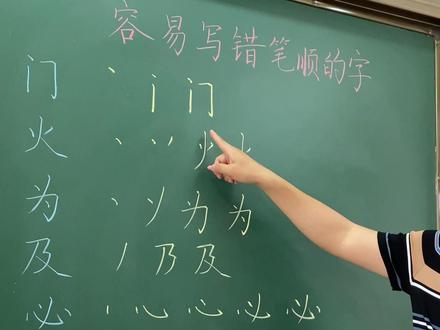 容易写错笔顺的字
门 丶 丨 门
火 丶 丷 火
为 丶 丷 为 为
及 丿 乃 及
必 丶 心 心 必 必